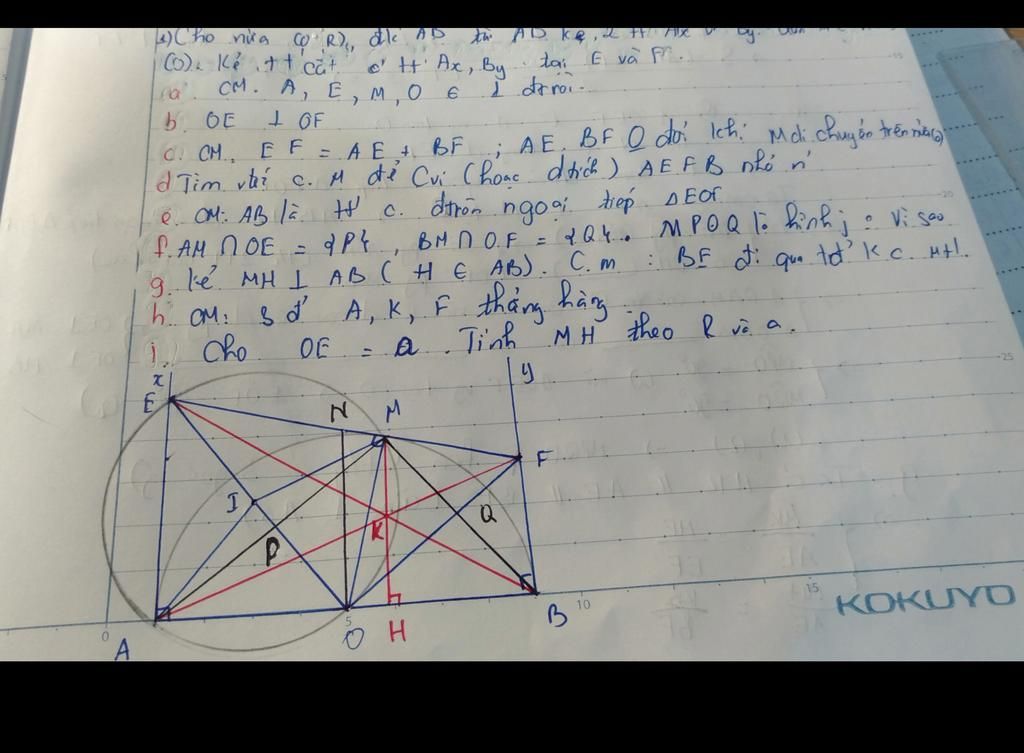 Cho nửa (O, R), đk AB
(O). Kẻ tt cắt 2 tt Ax, By tại E và F.
a. CM. A, E, M, O ∈ 1 đtròn.
b. OE ⊥ OF
c. CM. EF = AE + BF ; AE. BF đổi khi M di chuyển trên nửa (O)
d Tìm vtrí c. M để Cvi (hoặc dtích) AEFB nhỏ n'
e. CM: AB là tt c. đtròn ngoại tiếp ΔEOF
f. AM ∩ OE = {P}, BM ∩ OF = {Q}. MPOQ là hình j : vì sao
g. kẻ MH ⊥ AB (H ∈ AB). C.m : BE đi qua tđ K c. MH.
h. CM: 3 đ' A, K, F thẳng hàng
i. Cho OE = a. Tính MH theo R và a.
x y
E N M F
I Q
P K
A O H B
0 5 10 15 20 25
KOKUYO